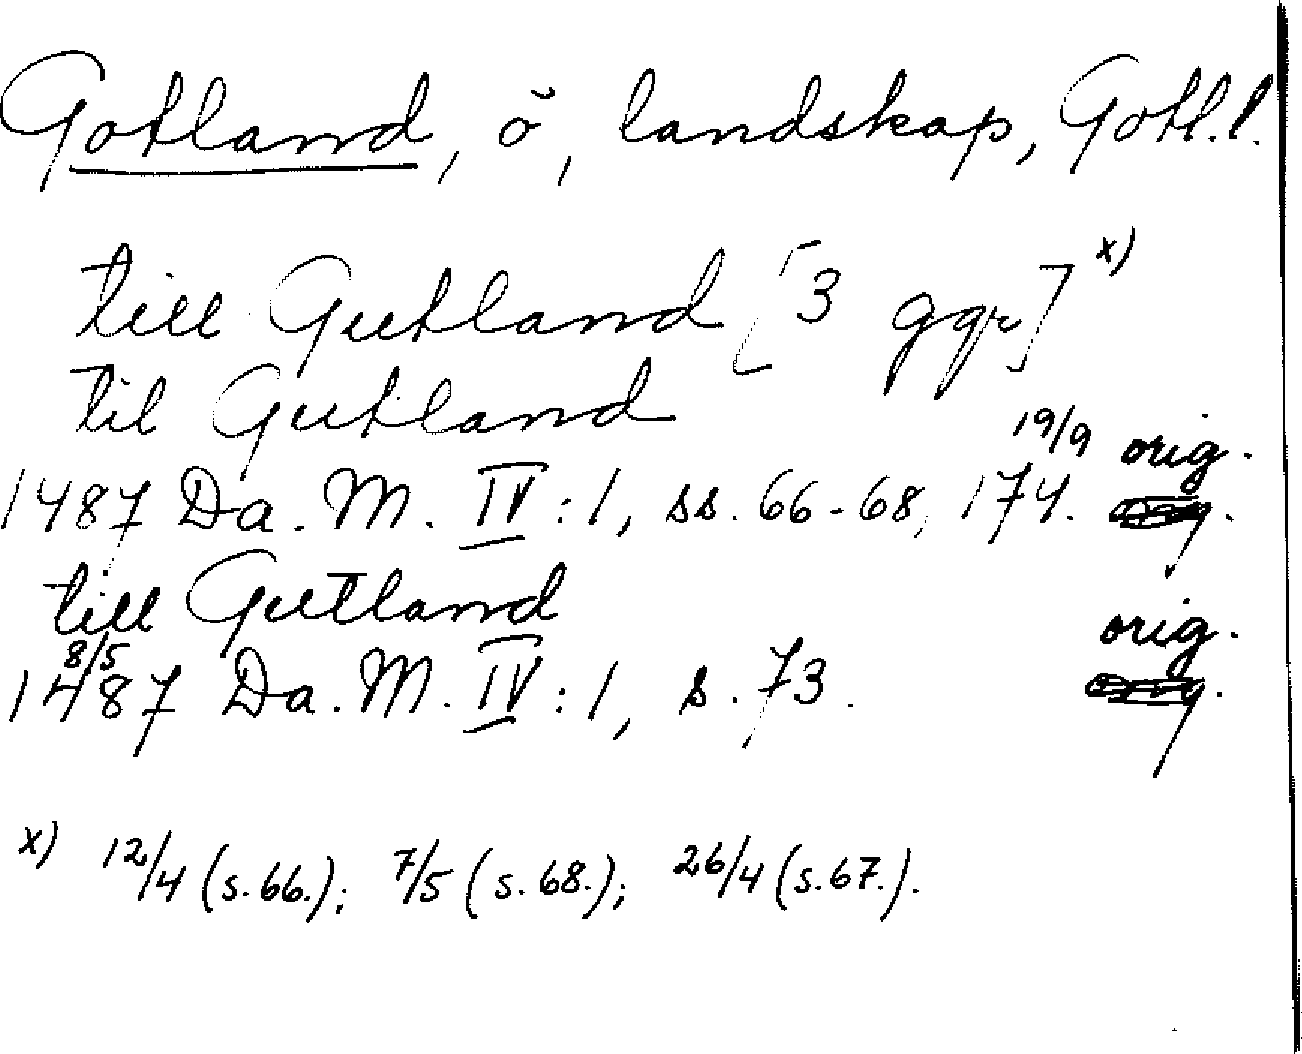 Gotland, ö, landskap, Gotl. l.
till Gutland [3 ggr] x)
til Gutland
1487 Da. M. IV:1, ss. 66-68, 174. 19/9 orig.
till Gutland
1487 8/5 Da. M. IV:1, s. 73. orig.
x) 12/4 (s. 66.); 7/5 (s. 68.); 26/4 (s. 67.).